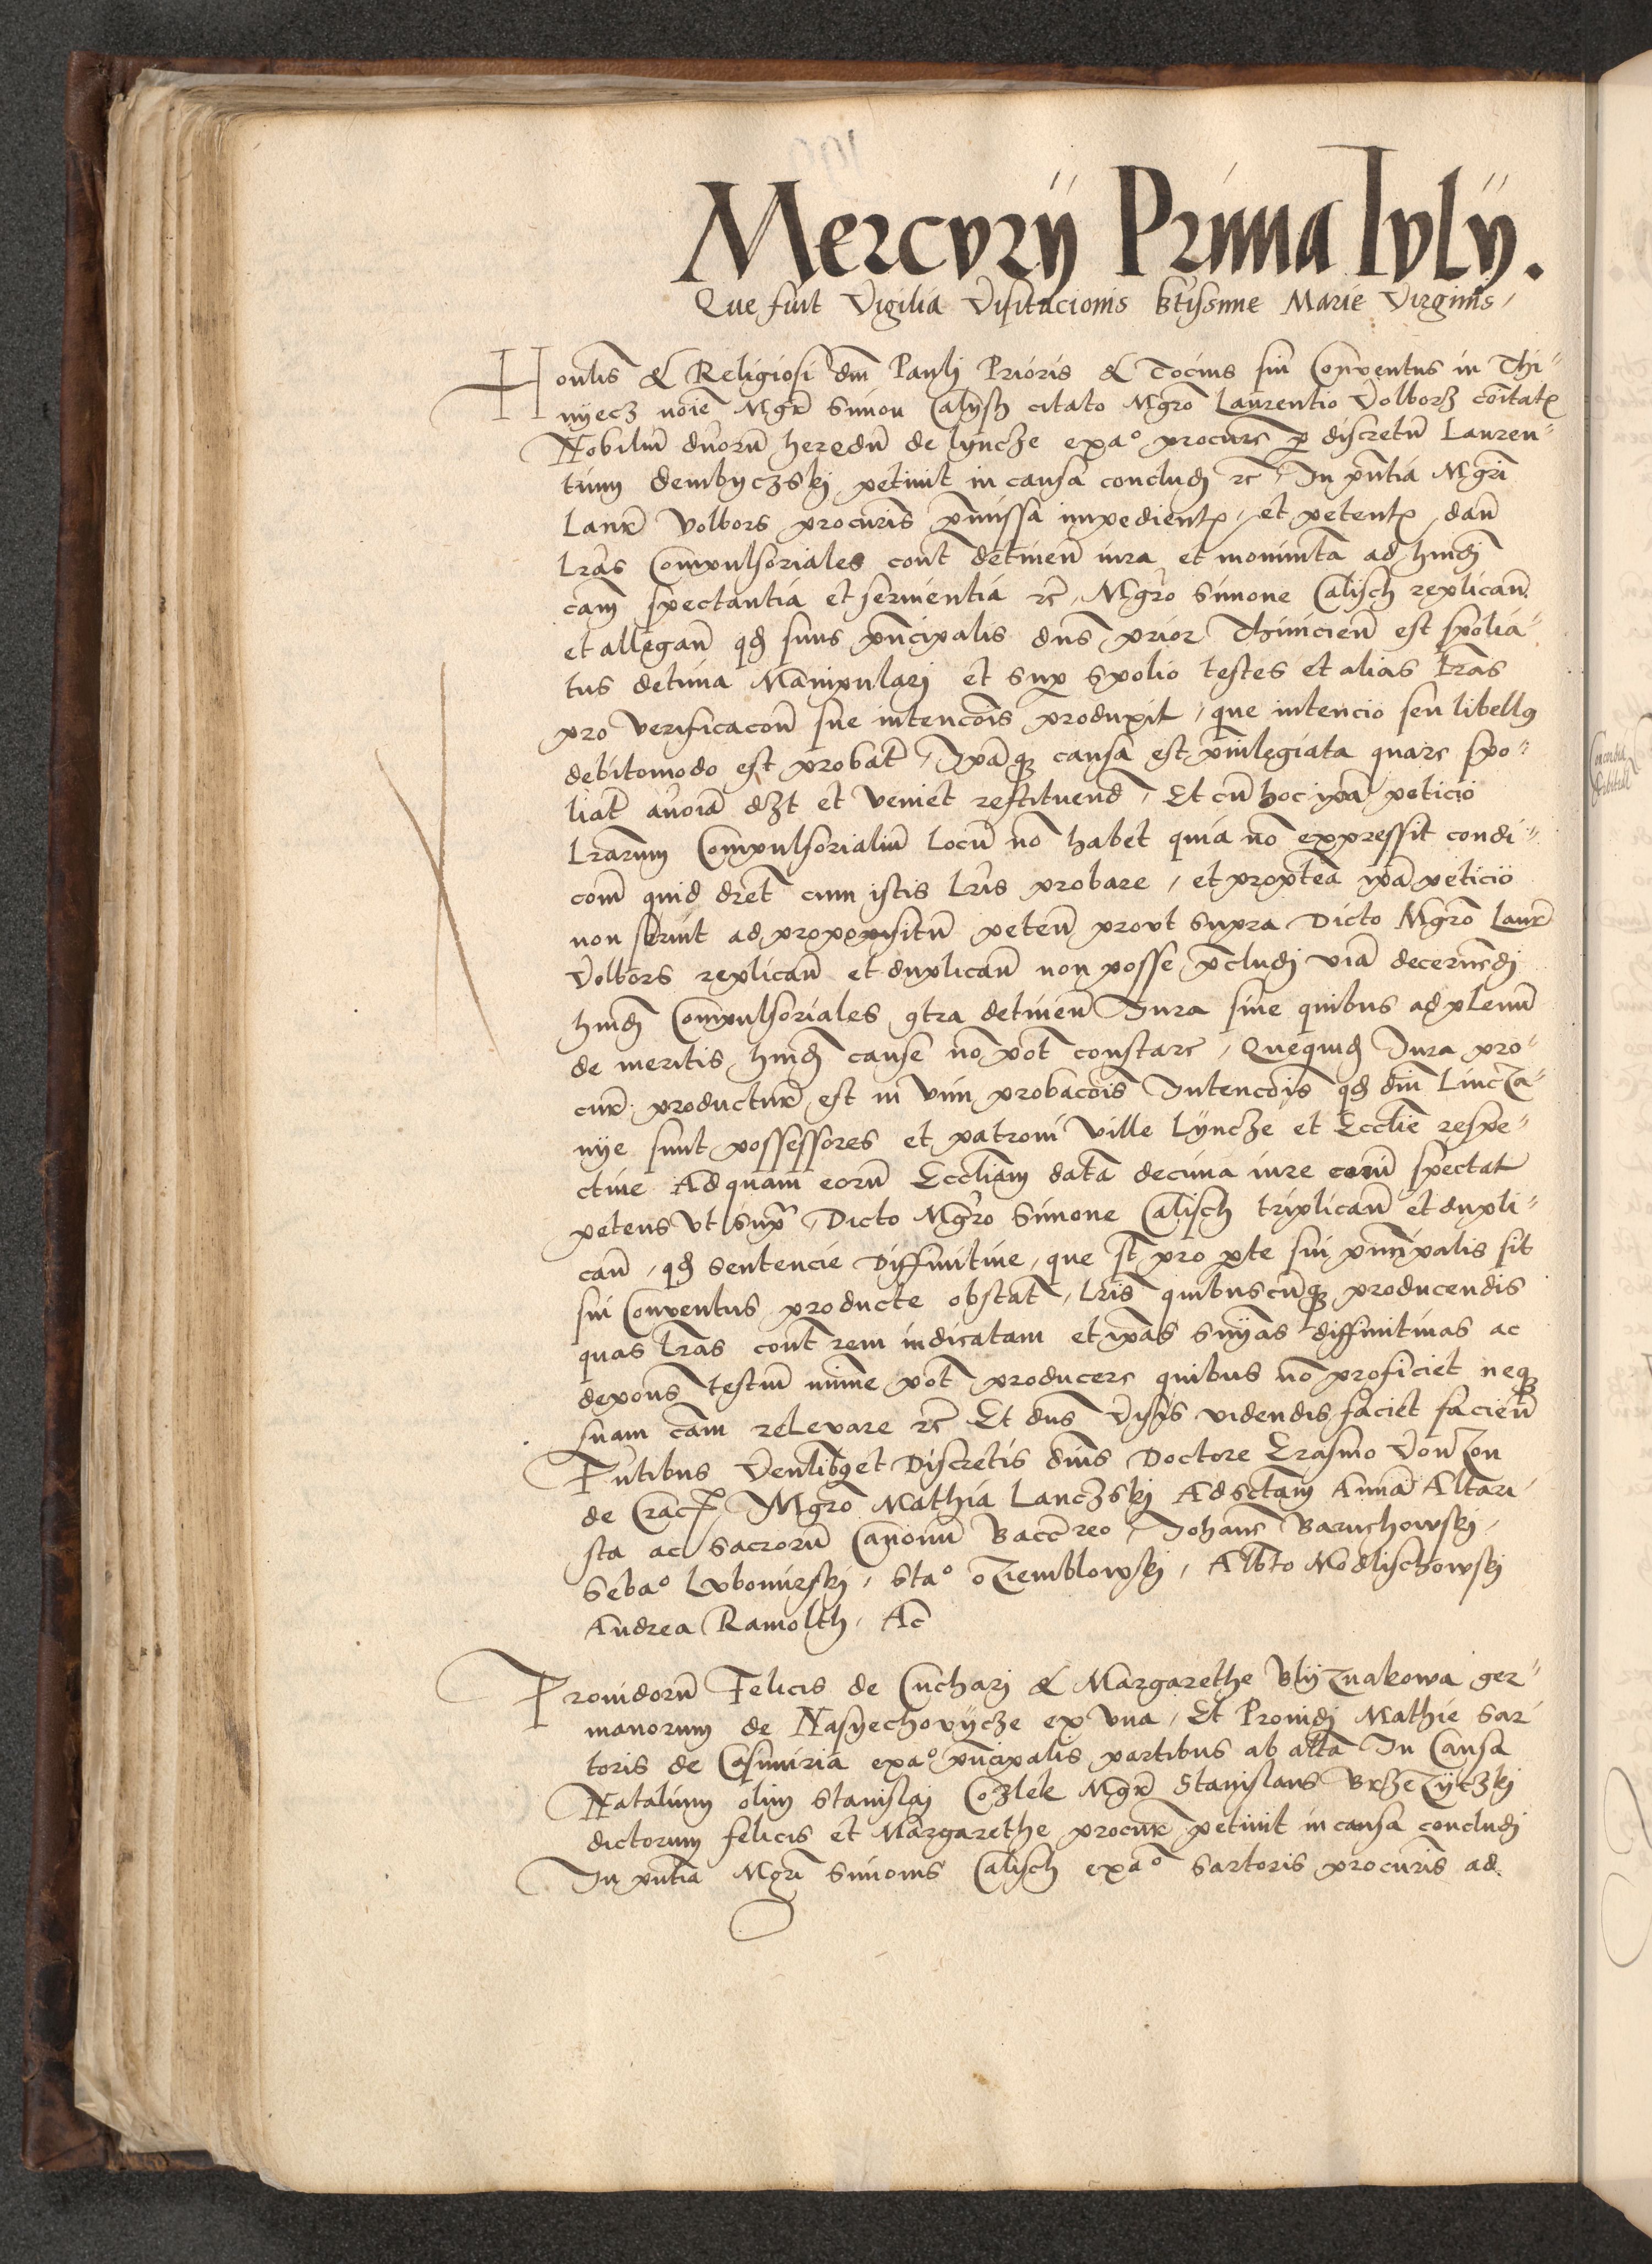 Mercvrÿ Prima Ivlÿ.
Que fuit Vigilia Visitacionis btissime Marie Virginis,
Honlis & Religiosi dni Pauli Prioris & Tocius sui Conventus in Thi"
nyecz noie Mgr Simon Calysch citato Mgro Laurentio Volborz
Nobiliu duoru heredu de lyncze expao procure p discretu Lauren"
tium dembyczskj petiuit in causa concludj rc, In pntia Mgri
Laure Volbors procuris pmissa impedient, et petent, dari
Lras Compulsoriales cont detinen iura et monimta ad hmdj
cam spectantia et servientia rc, Mgro Simone Calisch replican
et allegan qd suus pncipalis dns prior Thinicien est spolia"
tus decima Manipularj et sup spolio testes et alias lras
pro verificacon sue intencois produxit, que intencio seu libellq
debitomodo est probat, Ipaq causa est priuilegiata quare spo"
liat an oia dzt et veniet restituend, Et cu hoc ipa peticio
Lrarum Compulsorialiu locu no habet quia no expressit condi"
com quid dret cum istis lris probare, et proptea ipa peticio
non seruit ad propositu peten prout supra Dicto Mgro Laure
Volbors replican et duplican non posse pcludj via decernedj
hmdj Compulsoriales gtra detinen Iura sine quibus ad plenu
de meritis hmdj cause no pot constare, Quequid Iura pro"
cur productur est in vim probacois Intencois qd dni Lincza"
nye sunt possessores et patroni ville Lyncze et Ecclie respe"
ctiue Ad quam eoru Eccliam data decima iure spectat
petens vt supr, Dicto Mgro Simone Calisch triplican et dupli"
can, qd sentencie Diffinitiue, que st pro pte sui pncipalis sit
sui Conventus producte obstat, lris quibuscuq producendis
quas lras cont rem iudicatam et ipas snyas diffinitiuas ac
depons testiu minime pot producere quibus no proficiet neq
suam cam relevare rc Et dns Visis videndis faciet facien
Pntibus Venlibq et Discretis dnis Doctore Erasmo Vonzon
de Crac, Mgro Mathia Lanczskj Ad sctam Anna Altari"
sta ac Sacroru Canonu Baccreo, Iohane Baruchowskj,
Sebao Lvbomirskj, Stao oziemblowskj, Albto Modlischowskj
Andrea Ramolth, Ac
Prouidoru Felicis de Cucharj & Margarethe Vlyznakowa ger"
manorum de Nasyechovycze ex vna, Et Prouidj Mathie Sar"
toris de Casimiria expao pncipalis partibus ab alta In Causa
Natalium olim Stanislaj Cozlek Mgr Stanislaus Brzezyczkj
dictorum felicis et Margarethe procur petiuit in causa concludj
In pntia Mgri Simonis Calisch expao Sartoris procuris ad